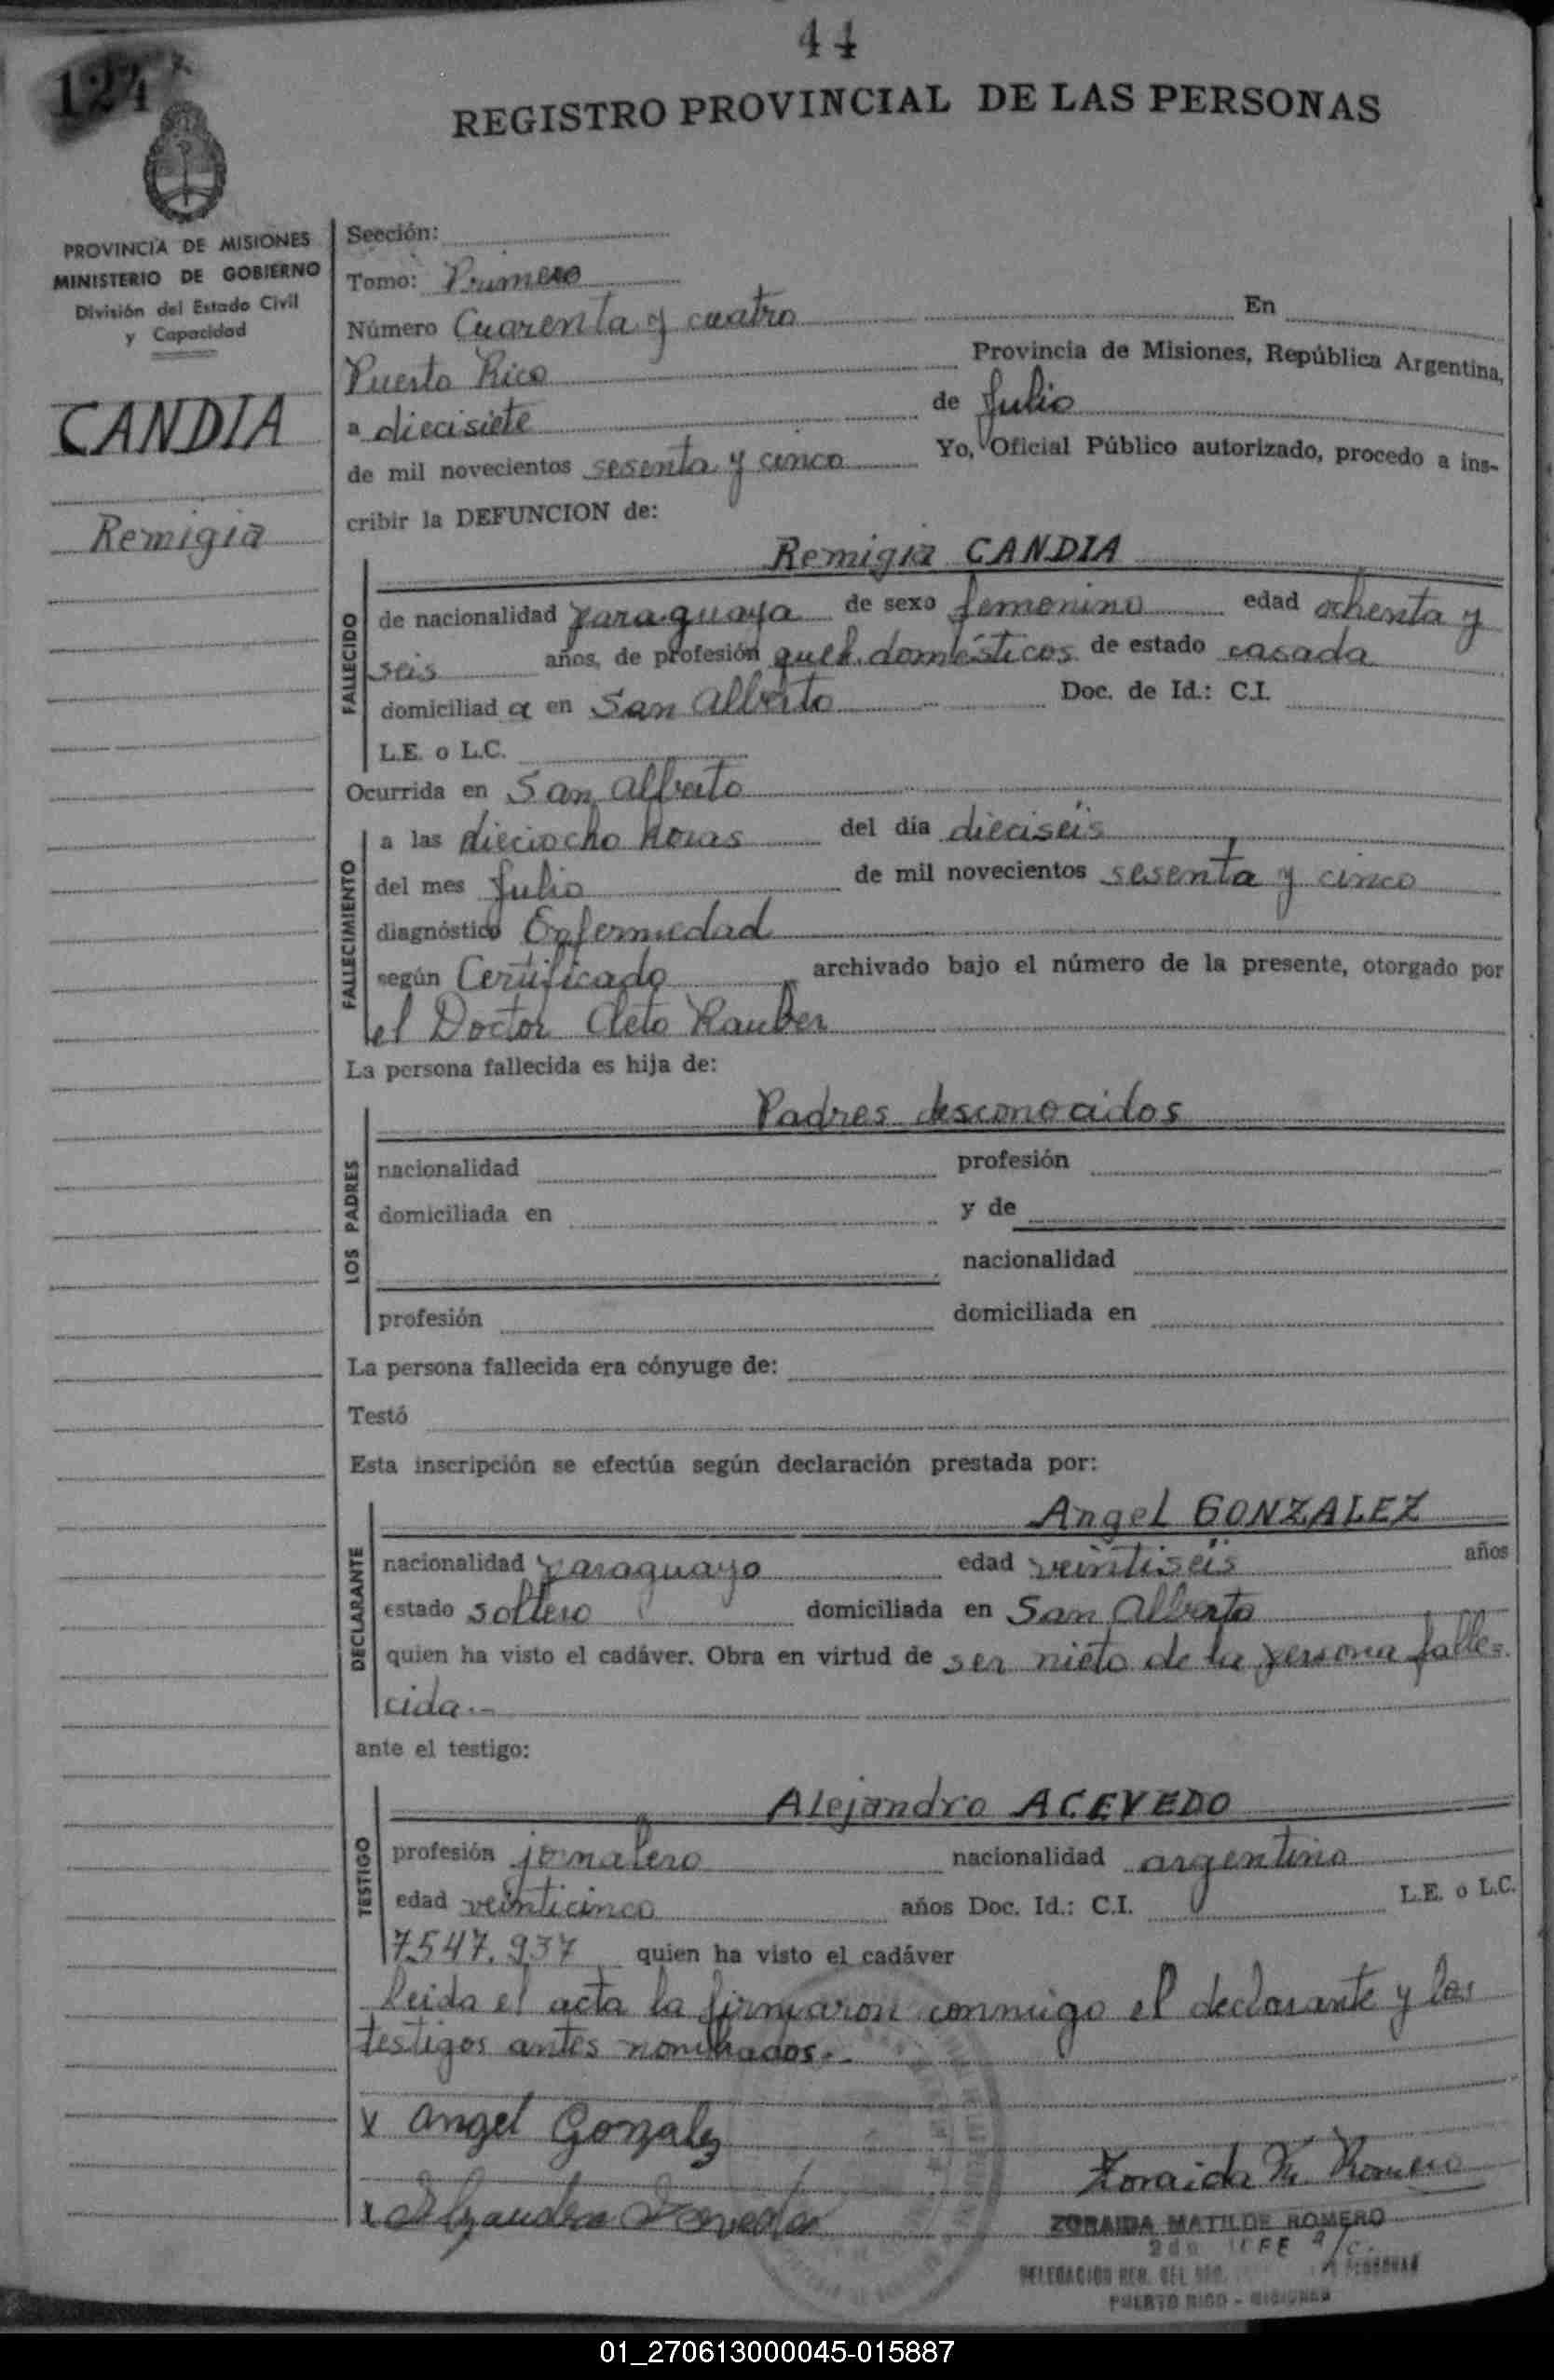 44
124
REGISTRO PROVINCIAL DE LAS PERSONAS
PROVINCIA DE MISIONES
MINISTERIO DE GOBIERNO
División del Estado Civil
y Capacidad
CANDIA
Remigia
Sección:
Tomo: Primero
Número Cuarenta y cuatro En
Puerto Rico Provincia de Misiones, República Argentina,
a diecisiete de Julio
de mil novecientos sesenta y cinco Yo, Oficial Público autorizado, procedo a ins-
cribir la DEFUNCION de:
Remigia CANDIA
FALLECIDO
de nacionalidad paraguaya de sexo femenino edad ochenta y
seis años, de profesión queh. domésticos de estado casada
domiciliad a en San Alberto Doc. de Id.: C.I.
L.E. o L.C.
Ocurrida en San Alberto
FALLECIMIENTO
a las dieciocho horas del día dieciseis
del mes Julio de mil novecientos sesenta y cinco
diagnóstico Enfermedad
según Certificado archivado bajo el número de la presente, otorgado por
el Doctor Cleto Rauber
La persona fallecida es hija de:
Padres desconocidos
LOS PADRES
nacionalidad profesión
domiciliada en y de
nacionalidad
profesión domiciliada en
La persona fallecida era cónyuge de:
Testó
Esta inscripción se efectúa según declaración prestada por:
Angel GONZALEZ
DECLARANTE
nacionalidad paraguayo edad veintiseis años
estado soltero domiciliada en San Alberto
quien ha visto el cadáver. Obra en virtud de ser nieto de la persona falle=
cida.-
ante el testigo:
Alejandro ACEVEDO
TESTIGO
profesión jornalero nacionalidad argentino
edad veinticinco años Doc. Id.: C.I. L.E. o L.C.
7.547.937 quien ha visto el cadáver
Leida el acta la firmaron conmigo el declarante y los
testigos antes nombrados.-
x Angel Gonzalez
Zoraida M. Romero
x Alejandro Acevedo
ZORAIDA MATILDE ROMERO
2do. JEFE a/c.
DELEGACION REG. DEL PERSONAS
PUERTO RICO - MISIONES
01_270613000045-015887